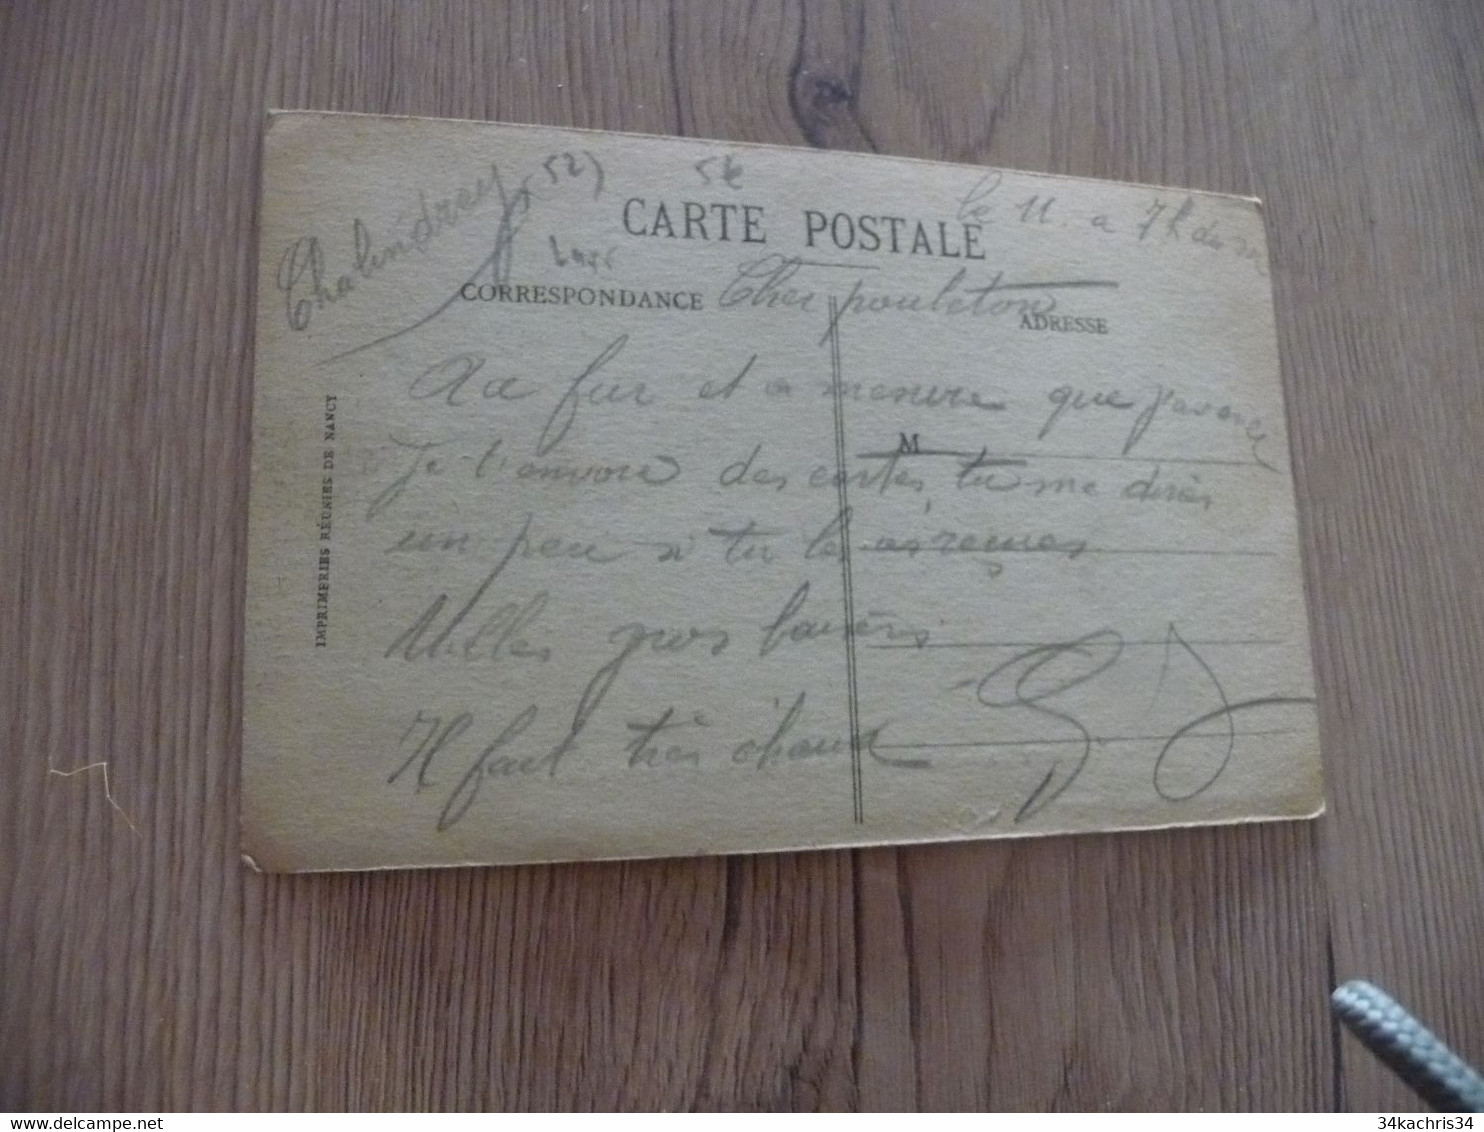 Chalindrey (52)
5k
le 11. a 7h du
CARTE POSTALE
CORRESPONDANCE
Cher pouleton
ADRESSE
Au fur et a mesure que j'avance
M
Je t'envoie des cartes, tu me diras
un peu si tu les as reçues
Milles gros baisers
Il fait très chaud
IMPRIMERIES RÉUNIES DE NANCY
34kachris34